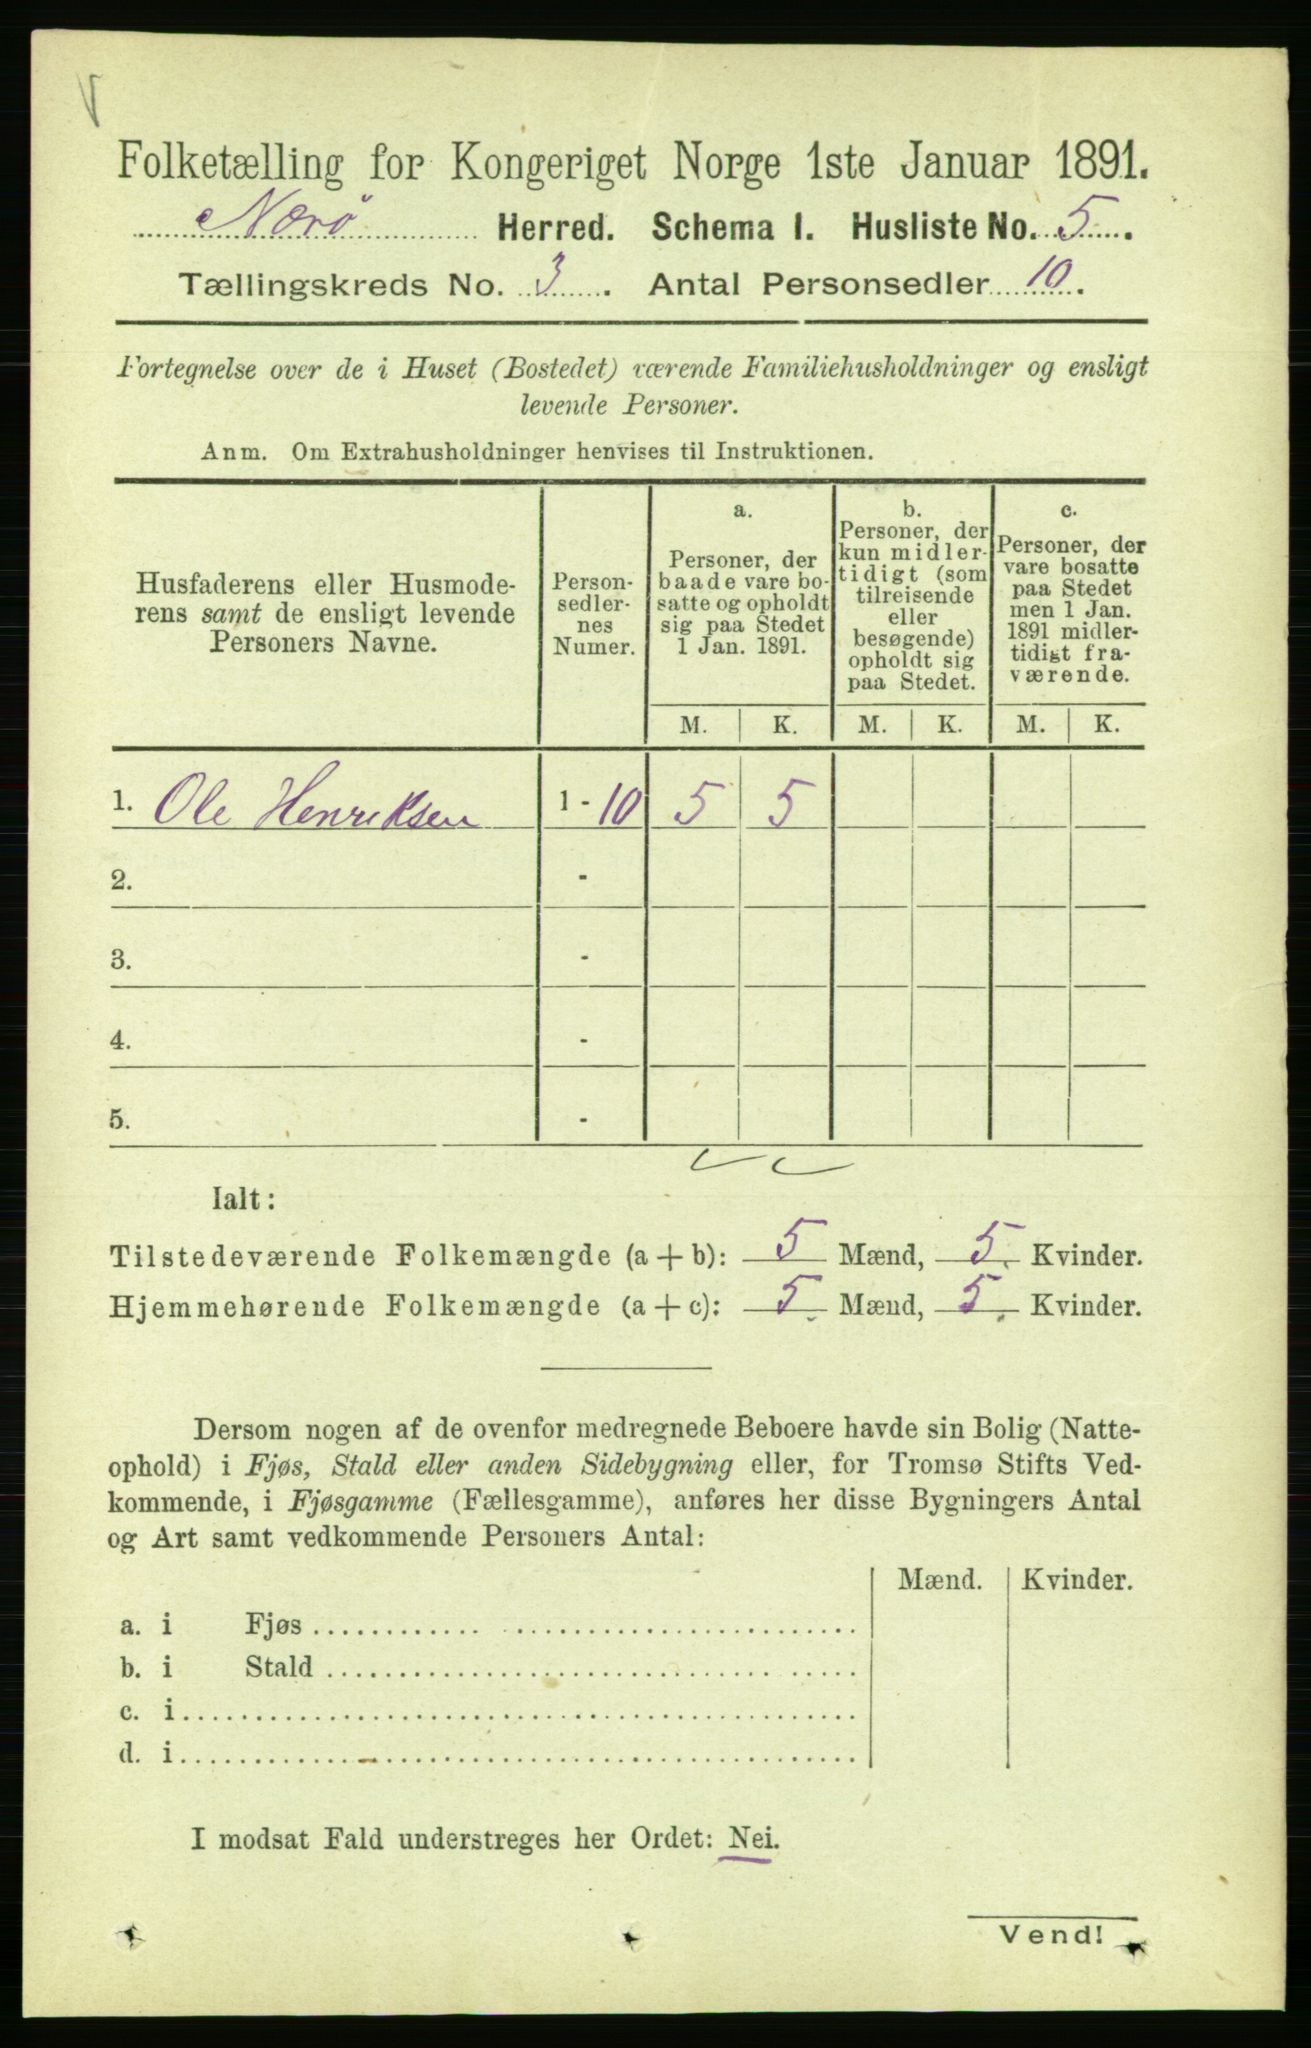 Folketælling for Kongeriget Norge 1ste Januar 1891.
Nærö Herred. Schema I. Husliste No. 5.
Tællingskreds No. 3. Antal Personsedler 10.
Fortegnelse over de i Huset (Bostedet) værende Familiehusholdninger og ensligt
levende Personer.
Anm. Om Extrahusholdninger henvises til Instruktionen.
Husfaderens eller Husmode-
rens samt de ensligt levende
Personers Navne.
Person-
sedler-
nes
Numer.
a.
Personer, der
baade vare bo-
satte og opholdt
sig paa Stedet
1 Jan. 1891.
b.
Personer, der
kun midler-
tidigt (som
tilreisende
eller
besøgende)
opholdt sig
paa Stedet.
c.
Personer, der
vare bosatte
paa Stedet
men 1 Jan.
1891 midler-
tidigt fra-
værende.
M. K. M. K. M. K.
1. Ole Henriksen 1 - 10 5 5
2. -
3. -
4. -
5. -
Ialt:
Tilstedeværende Folkemængde (a + b): 5 Mænd, 5 Kvinder.
Hjemmehørende Folkemængde (a + c): 5 Mænd, 5 Kvinder.
Dersom nogen af de ovenfor medregnede Beboere havde sin Bolig (Natte-
ophold) i Fjøs, Stald eller anden Sidebygning eller, for Tromsø Stifts Ved-
kommende, i Fjøsgamme (Fællesgamme), anføres her disse Bygningers Antal
og Art samt vedkommende Personers Antal:
Mænd. Kvinder.
a. i Fjøs
b. i Stald
c. i
d. i
I modsat Fald understreges her Ordet: Nei.
Vend!